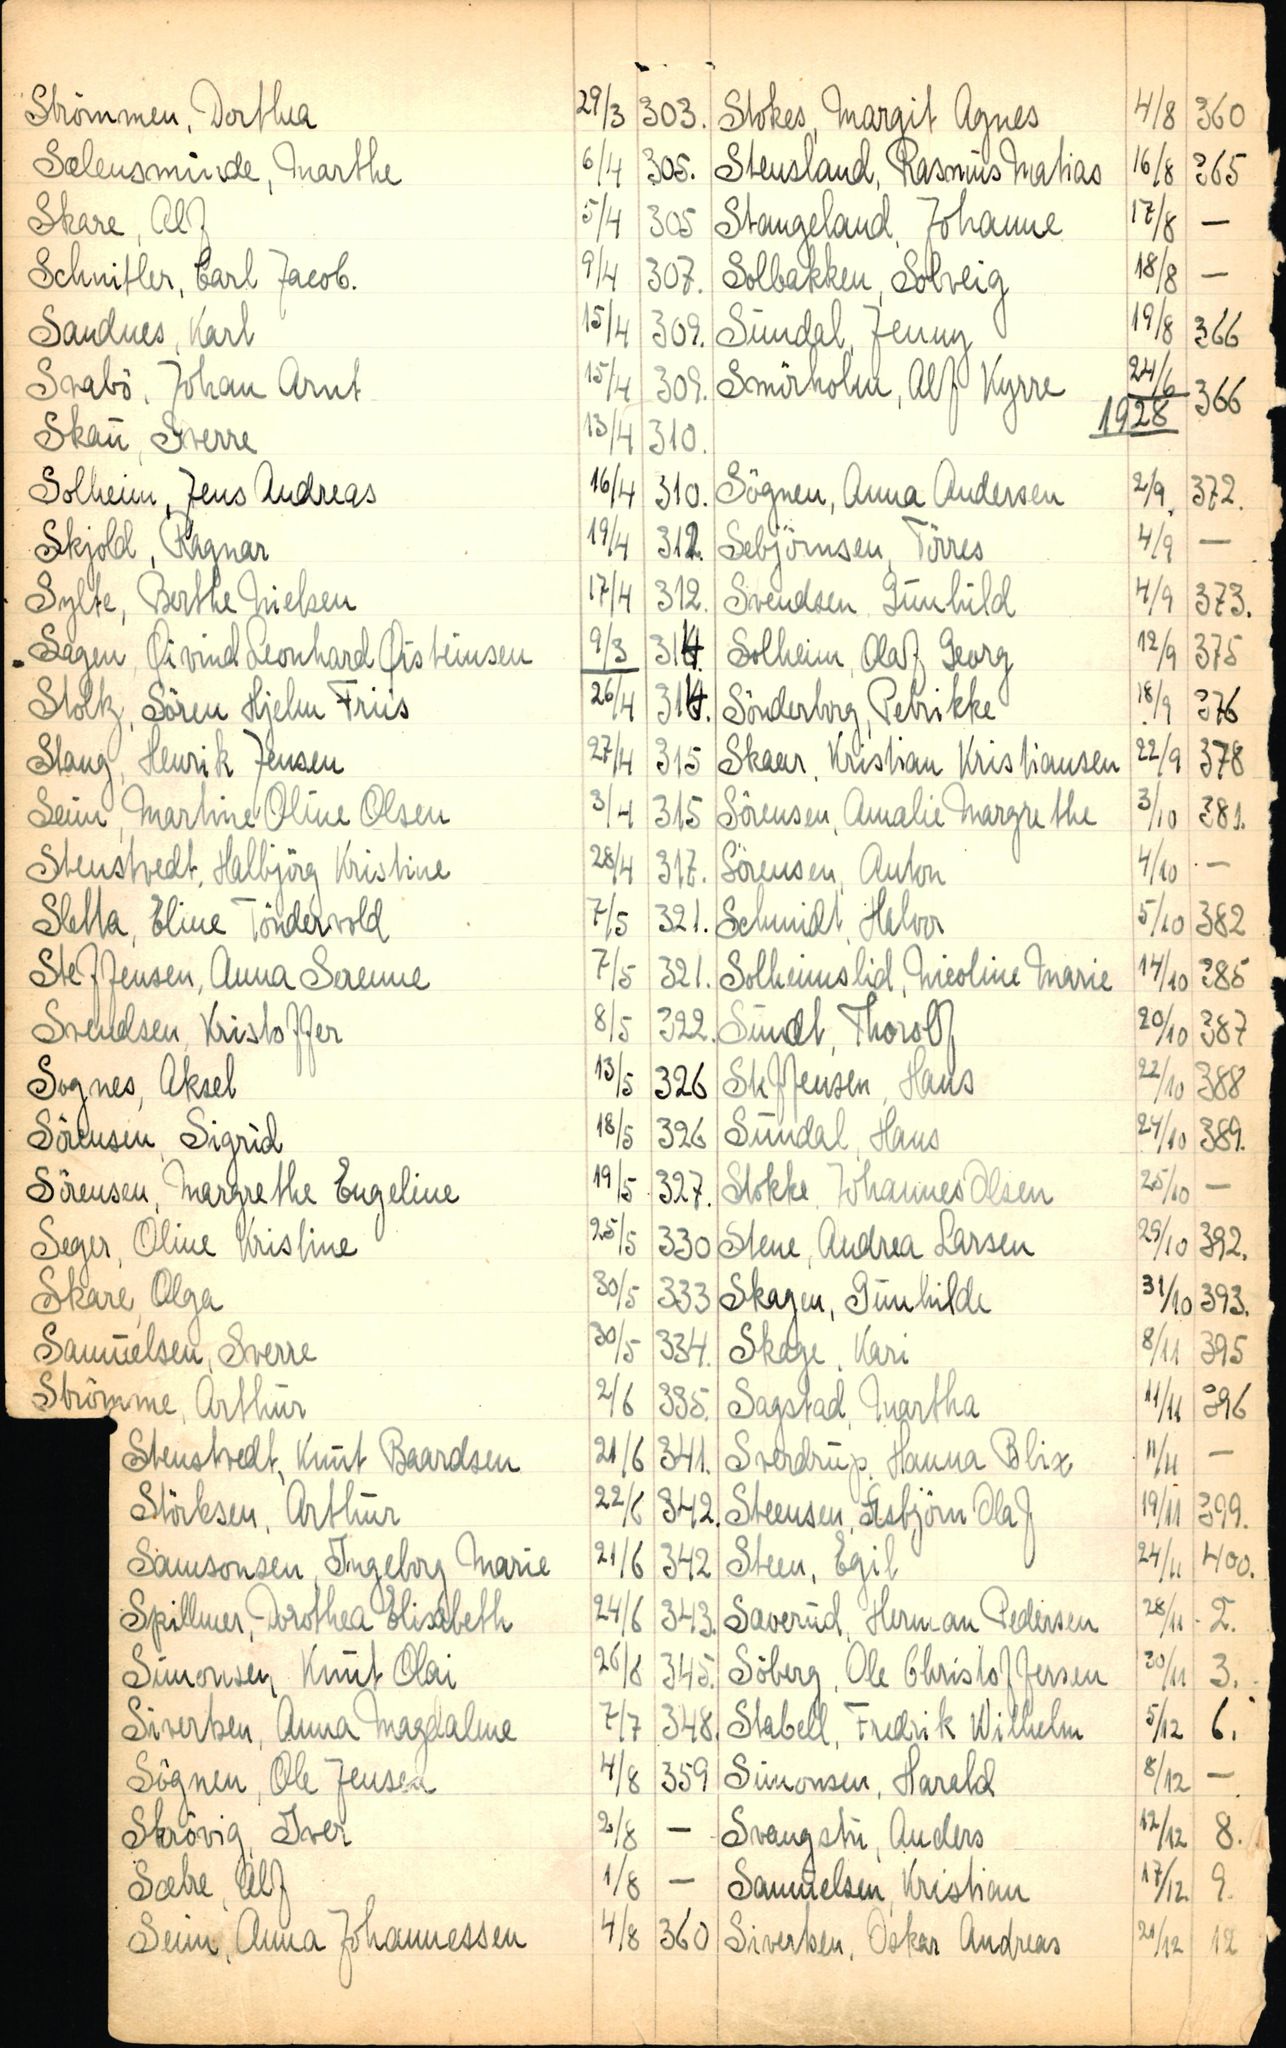 Strömmen, Dorthea 29/3 303.
Sælensminde, Marthe 6/4 305.
Skare, Alf 5/4 305
Schnitler, Carl Jacob. 9/4 307.
Sandnes, Karl 15/4 309.
Svabö, Johan Arnt 15/4 309.
Skaŭ, Sverre 13/4 310.
Solheim, Jens Andreas 16/4 310.
Skjold, Ragnar 19/4 312.
Sylte, Berthe Nielsen 17/4 312.
Sagen, Öivind Leonhard Öisteinsen 9/3 314.
Stoltz, Sören Hjelm Friis 26/4 314.
Stang, Henrik Jensen 27/4 315
Seim, Martine Oline Olsen 3/4 315
Stenstvedt, Halbjörg Kristine 28/4 317.
Sletta, Eline Töndervold 7/5 321.
Steffensen, Anna Serenne 7/5 321.
Svendsen, Kristoffer 8/5 322.
Sognes, Aksel 13/5 326
Sörensen, Sigrid 18/5 326
Sörensen, Margrethe Engeline 19/5 327.
Seger, Oline Kristine 25/5 330
Skare, Olga 30/5 333
Samŭelsen, Sverre 30/5 334.
Strömme, Arthŭr 2/6 335.
Stenstvedt, Knŭt Baardsen 21/6 341.
Störksen, Arthŭr 22/6 342.
Samsonsen, Ingeborg Marie 21/6 342
Spillmer, Dorothea Elisabeth 24/6 343.
Simonsen, Knŭt Olai 26/6 345.
Sivertsen, Anna Magdalene 7/7 348.
Sögnen, Ole Jensen 4/8 359
Skrövig, Iver 2/8 —
Sæbre, Alf 1/8 —
Seim, Anna Johannessen 4/8 360
Stokes, Margit Agnes 4/8 360
Stensland, Rasmŭs Matias 16/8 365
Stangeland, Johanne 17/8 —
Solbakken, Solveig 18/8 —
Sŭndal, Jenny 19/8 366
Smörholm, Alf Kyrre 24/6 1928 366
Sögnen, Anna Andersen 2/9. 372.
Sebjörnsen, Törres 4/9 —
Svendsen, Gŭnhild 4/9 373.
Solheim, Olaf Georg 12/9 375
Sönderborg, Petrikke 18/9 376
Skaar, Kristian Kristiansen 22/9 378
Sörensen, Amalie Margrethe 3/10 381.
Sörensen, Anton 4/10 —
Schmidt, Halvor 5/10 382
Solheimslid, Nicoline Marie 14/10 385
Sŭndt, Thorolf 20/10 387
Steffensen, Hans 22/10 388
Sŭndal, Hans 24/10 389.
Stokke, Johannes Olsen 25/10 —
Stene, Andrea Larsen 29/10 392.
Skagen, Gŭnhilde 31/10 393.
Skage, Kari 8/11 395
Sagstad, Martha 11/11 396
Sverdrŭp, Hanna Blix 11/11 —
Steensen, Asbjörn Olaf 19/11 399.
Steen, Egil 24/11 400.
Saverŭd, Herman Pedersen 28/11 2.
Söberg, Ole Christoffersen 30/11 3.
Stabell, Fredrik Wilhelm 5/12 6.
Simonsen, Harald 8/12 —
Svangstŭ, Anders 12/12 8.
Samŭelsen, Kristian 17/12 9.
Sivertsen, Oskar Andreas 21/12 12